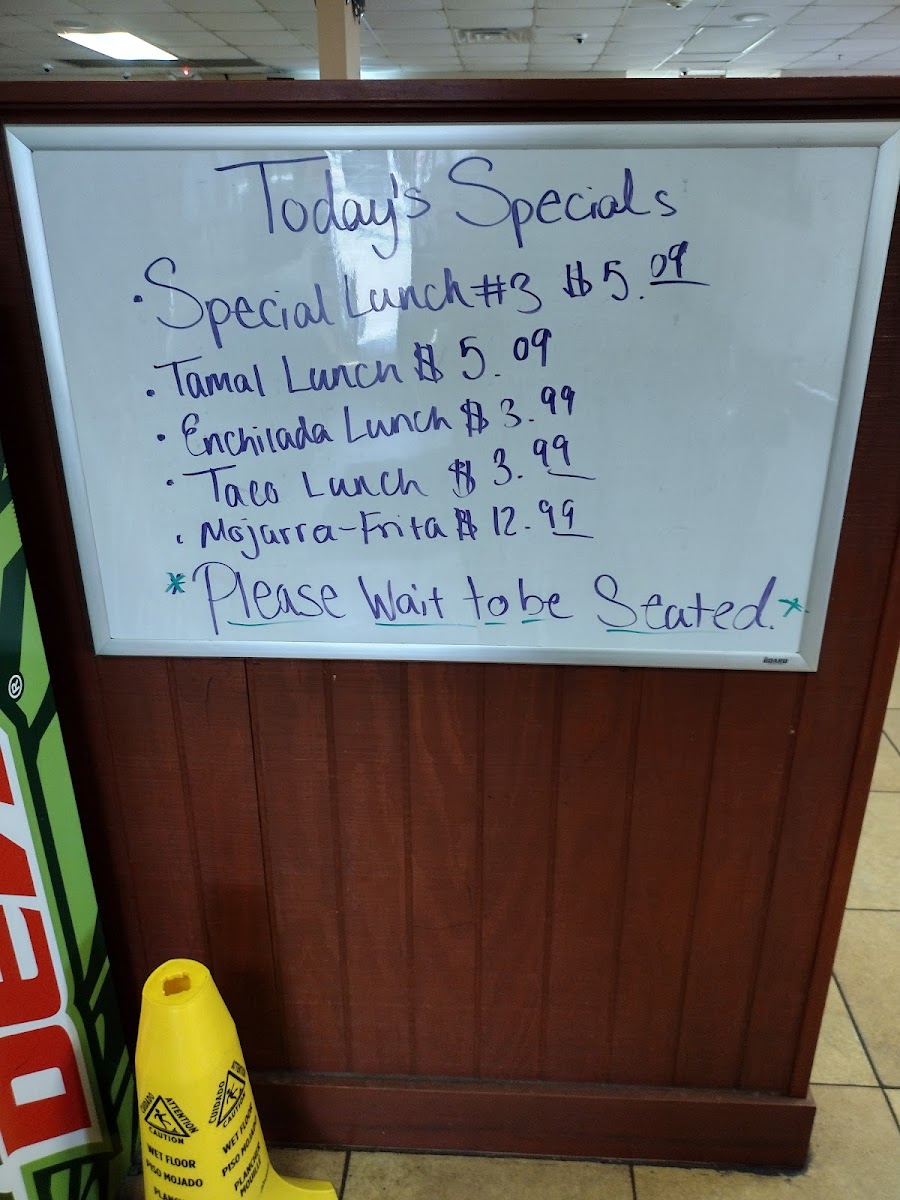 Today's Specials
• Special Lunch #3 $5.09
• Tamal Lunch $5.09
• Enchilada Lunch $3.99
• Taco Lunch $3.99
• Mojarra-Frita $12.99
* Please Wait to be Seated. *
BOARD
®
CUIDADO
ATTENTION
CAUTION
WET FLOOR
PISO MOJADO
CUIDADO
CAUTION
WET FLOOR
PISO MOJADO